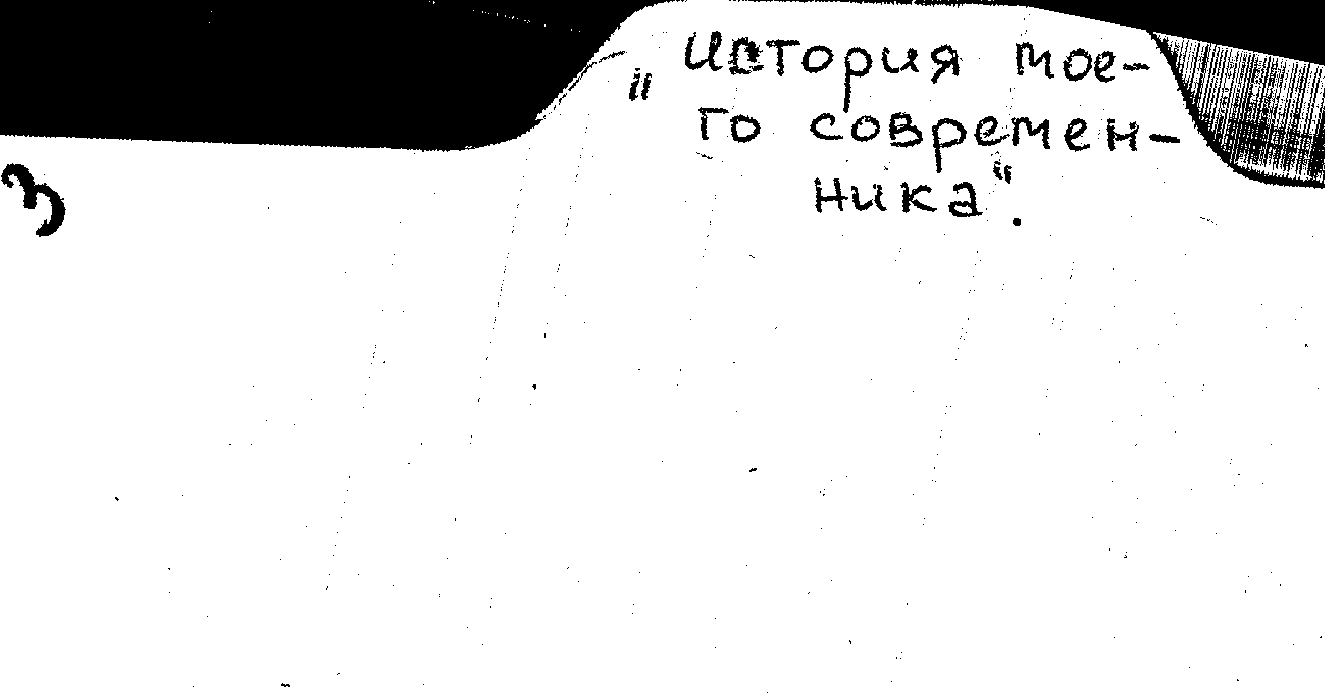 „История мое-
го современ-
ника“.